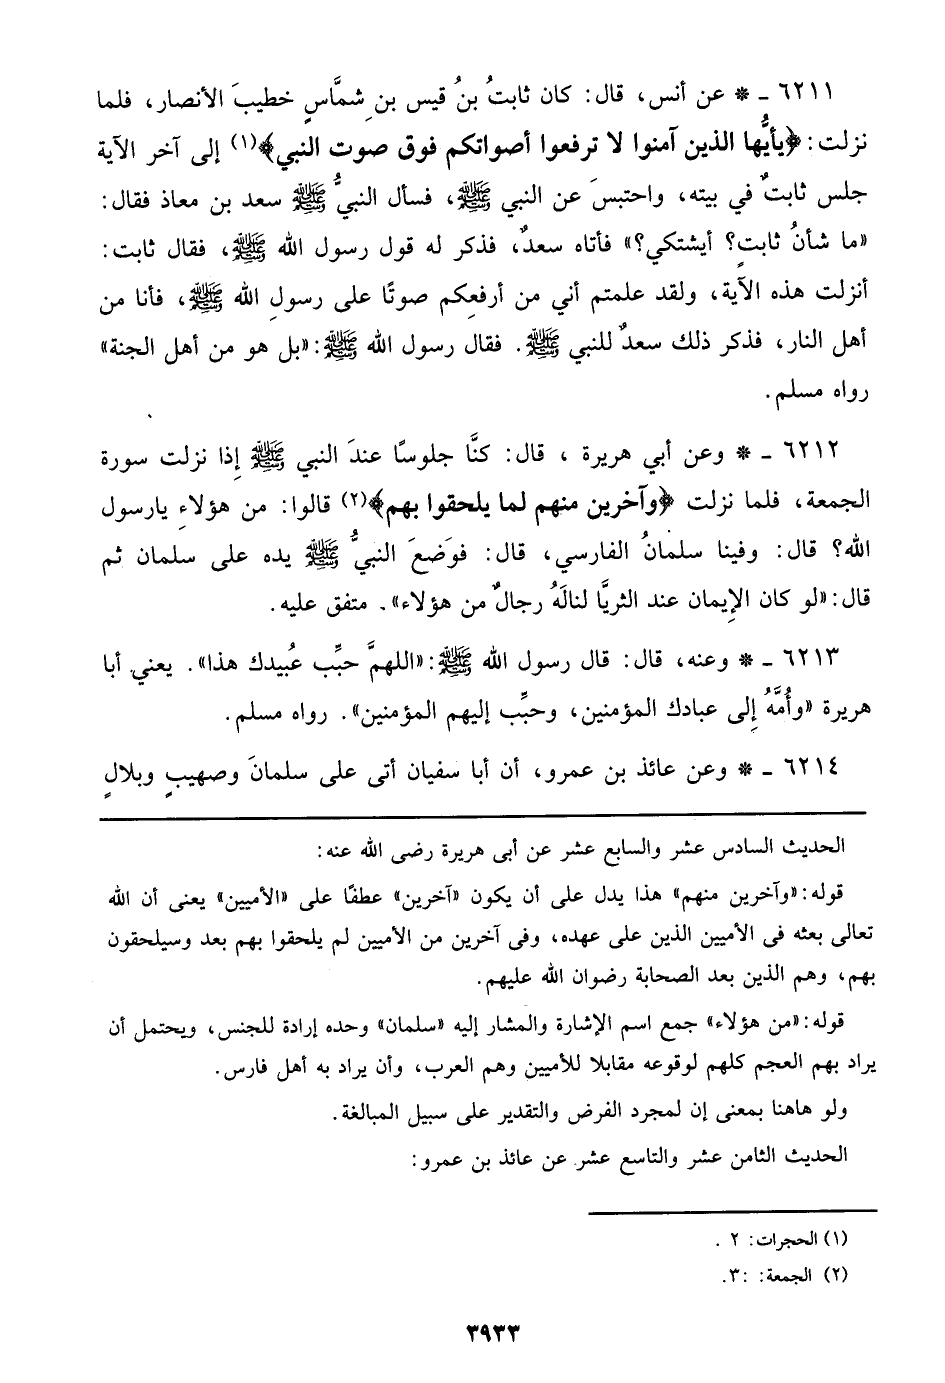 ٦٢١١ ـ * عن أنس، قال: كان ثابتُ بنُ قيس بنِ شمَّاسٍ خطيبَ الأنصار، فلما
نزلت: ﴿يأيُّها الذين آمنوا لا ترفعوا أصواتكم فوق صوت النبي﴾(١) إلى آخر الآية
جلس ثابتٌ في بيته، واحتبسَ عن النبي ﷺ، فسأل النبيُّ ﷺ سعد بن معاذ فقال:
«ما شأنُ ثابتٍ؟ أيشتكي؟» فأتاه سعدٌ، فذكر له قول رسول الله ﷺ، فقال ثابت:
أنزلت هذه الآية، ولقد علمتم أني من أرفعِكم صوتًا على رسولِ الله ﷺ، فأنا من
أهل النار، فذكر ذلك سعدٌ للنبي ﷺ. فقال رسول الله ﷺ:«بل هو من أهل الجنة»
رواه مسلم.
٦٢١٢ ـ * وعن أبي هريرة ، قال: كنَّا جلوسًا عندَ النبي ﷺ إذا نزلت سورة
الجمعة، فلما نزلت ﴿وآخرين منهم لما يلحقوا بهم﴾(٢) قالوا: من هؤلاءِ يارسول
الله؟ قال: وفينا سلمانُ الفارسي، قال: فوَضعَ النبيُّ ﷺ يده على سلمان ثم
قال:«لو كان الإِيمان عند الثريَّا لنالَهُ رجالٌ من هؤلاء». متفق عليه.
٦٢١٣ ـ * وعنه، قال: قال رسول الله ﷺ:«اللهمَّ حبِّب عُبيدك هذا». يعني أبا
هريرة «وأُمَّهُ إِلى عبادك المؤمنين، وحبِّب إليهم المؤمنين». رواه مسلم.
٦٢١٤ ـ * وعن عائذ بن عمرو، أن أبا سفيان أتى على سلمانَ وصهيبٍ وبلالٍ
الحديث السادس عشر والسابع عشر عن أبى هريرة رضى الله عنه:
قوله:«وآخرين منهم» هذا يدل على أن يكون «آخرين» عطفًا على «الأميين» يعنى أن الله
تعالى بعثه فى الأميين الذين على عهده، وفى آخرين من الأميين لم يلحقوا بهم بعد وسيلحقون
بهم، وهم الذين بعد الصحابة رضوان الله عليهم.
قوله:«من هؤلاء» جمع اسم الإشارة والمشار إليه «سلمان» وحده إرادة للجنس، ويحتمل أن
يراد بهم العجم كلهم لوقوعه مقابلا للأميين وهم العرب، وأن يراد به أهل فارس.
ولو هاهنا بمعنى إن لمجرد الفرض والتقدير على سبيل المبالغة.
الحديث الثامن عشر والتاسع عشر عن عائذ بن عمرو:
(١) الحجرات: ٢ .
(٢) الجمعة: :٣.
٣٩٣٣